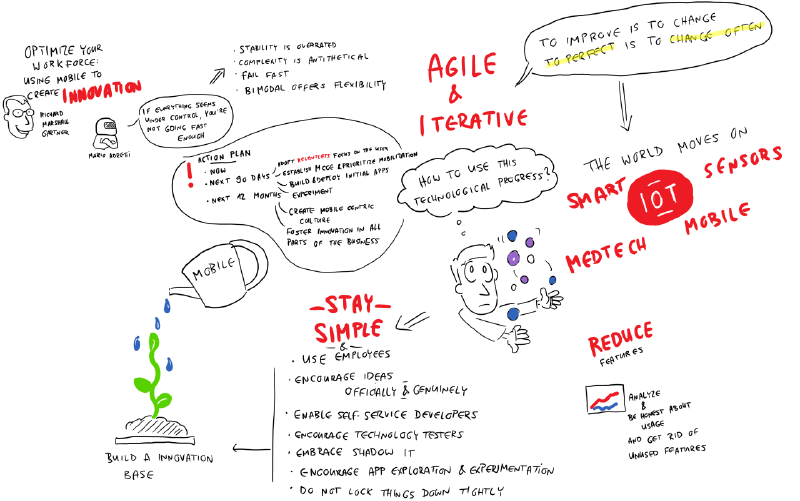 OPTIMIZE YOUR
WORKFORCE:
USING MOBILE TO
CREATE INNOVATION
RICHARD
MARSHALL
GARTNER
· STABILITY IS OVERRATED
· COMPLEXITY IS ANTITHETICAL
· FAIL FAST
· BIMODAL OFFERS FLEXIBILITY
IF EVERYTHING SEEMS
UNDER CONTROL, YOU'RE
NOT GOING FAST
ENOUGH
MARIO ADRETTI
AGILE
&
ITERATIVE
TO IMPROVE IS TO CHANGE
TO PERFECT IS TO CHANGE OFTEN
! ACTION PLAN
· NOW
· NEXT 90 DAYS
· NEXT 12 MONTHS
ADOPT RELENTLESS FOCUS ON THE USER
ESTABLISH MCOE & PRIORITIZE MOBILIZATION
BUILD & DEPLOY INITIAL APPS
EXPERIMENT
CREATE MOBILE CENTRIC
CULTURE
FOSTER INNOVATION IN ALL
PARTS OF THE BUSINESS
HOW TO USE THIS
TECHNOLOGICAL PROGRESS?
THE WORLD MOVES ON
SMART
IOT
SENSORS
MOBILE
MEDTECH
MOBILE
BUILD A INNOVATION
BASE
-STAY-
SIMPLE
-&-
· USE EMPLOYEES
· ENCOURAGE IDEAS
OFFICIALLY & GENUINELY
· ENABLE SELF SERVICE DEVELOPERS
· ENCOURAGE TECHNOLOGY TESTERS
· EMBRACE SHADOW IT
· ENCOURAGE APP EXPLORATION & EXPERIMENTATION
· DO NOT LOCK THINGS DOWN TIGHTLY
REDUCE
FEATURES
ANALYZE
&
BE HONEST ABOUT
USAGE
AND GET RID OF
UNUSED FEATURES